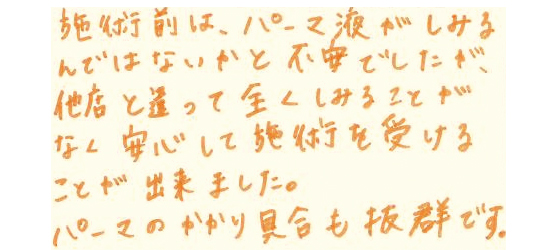 施術前は、パーマ液がしみる
んではないかと不安でしたが、
他店と違って全くしみることが
なく安心して施術を受ける
ことが出来ました。
パーマのかかり具合も抜群です。